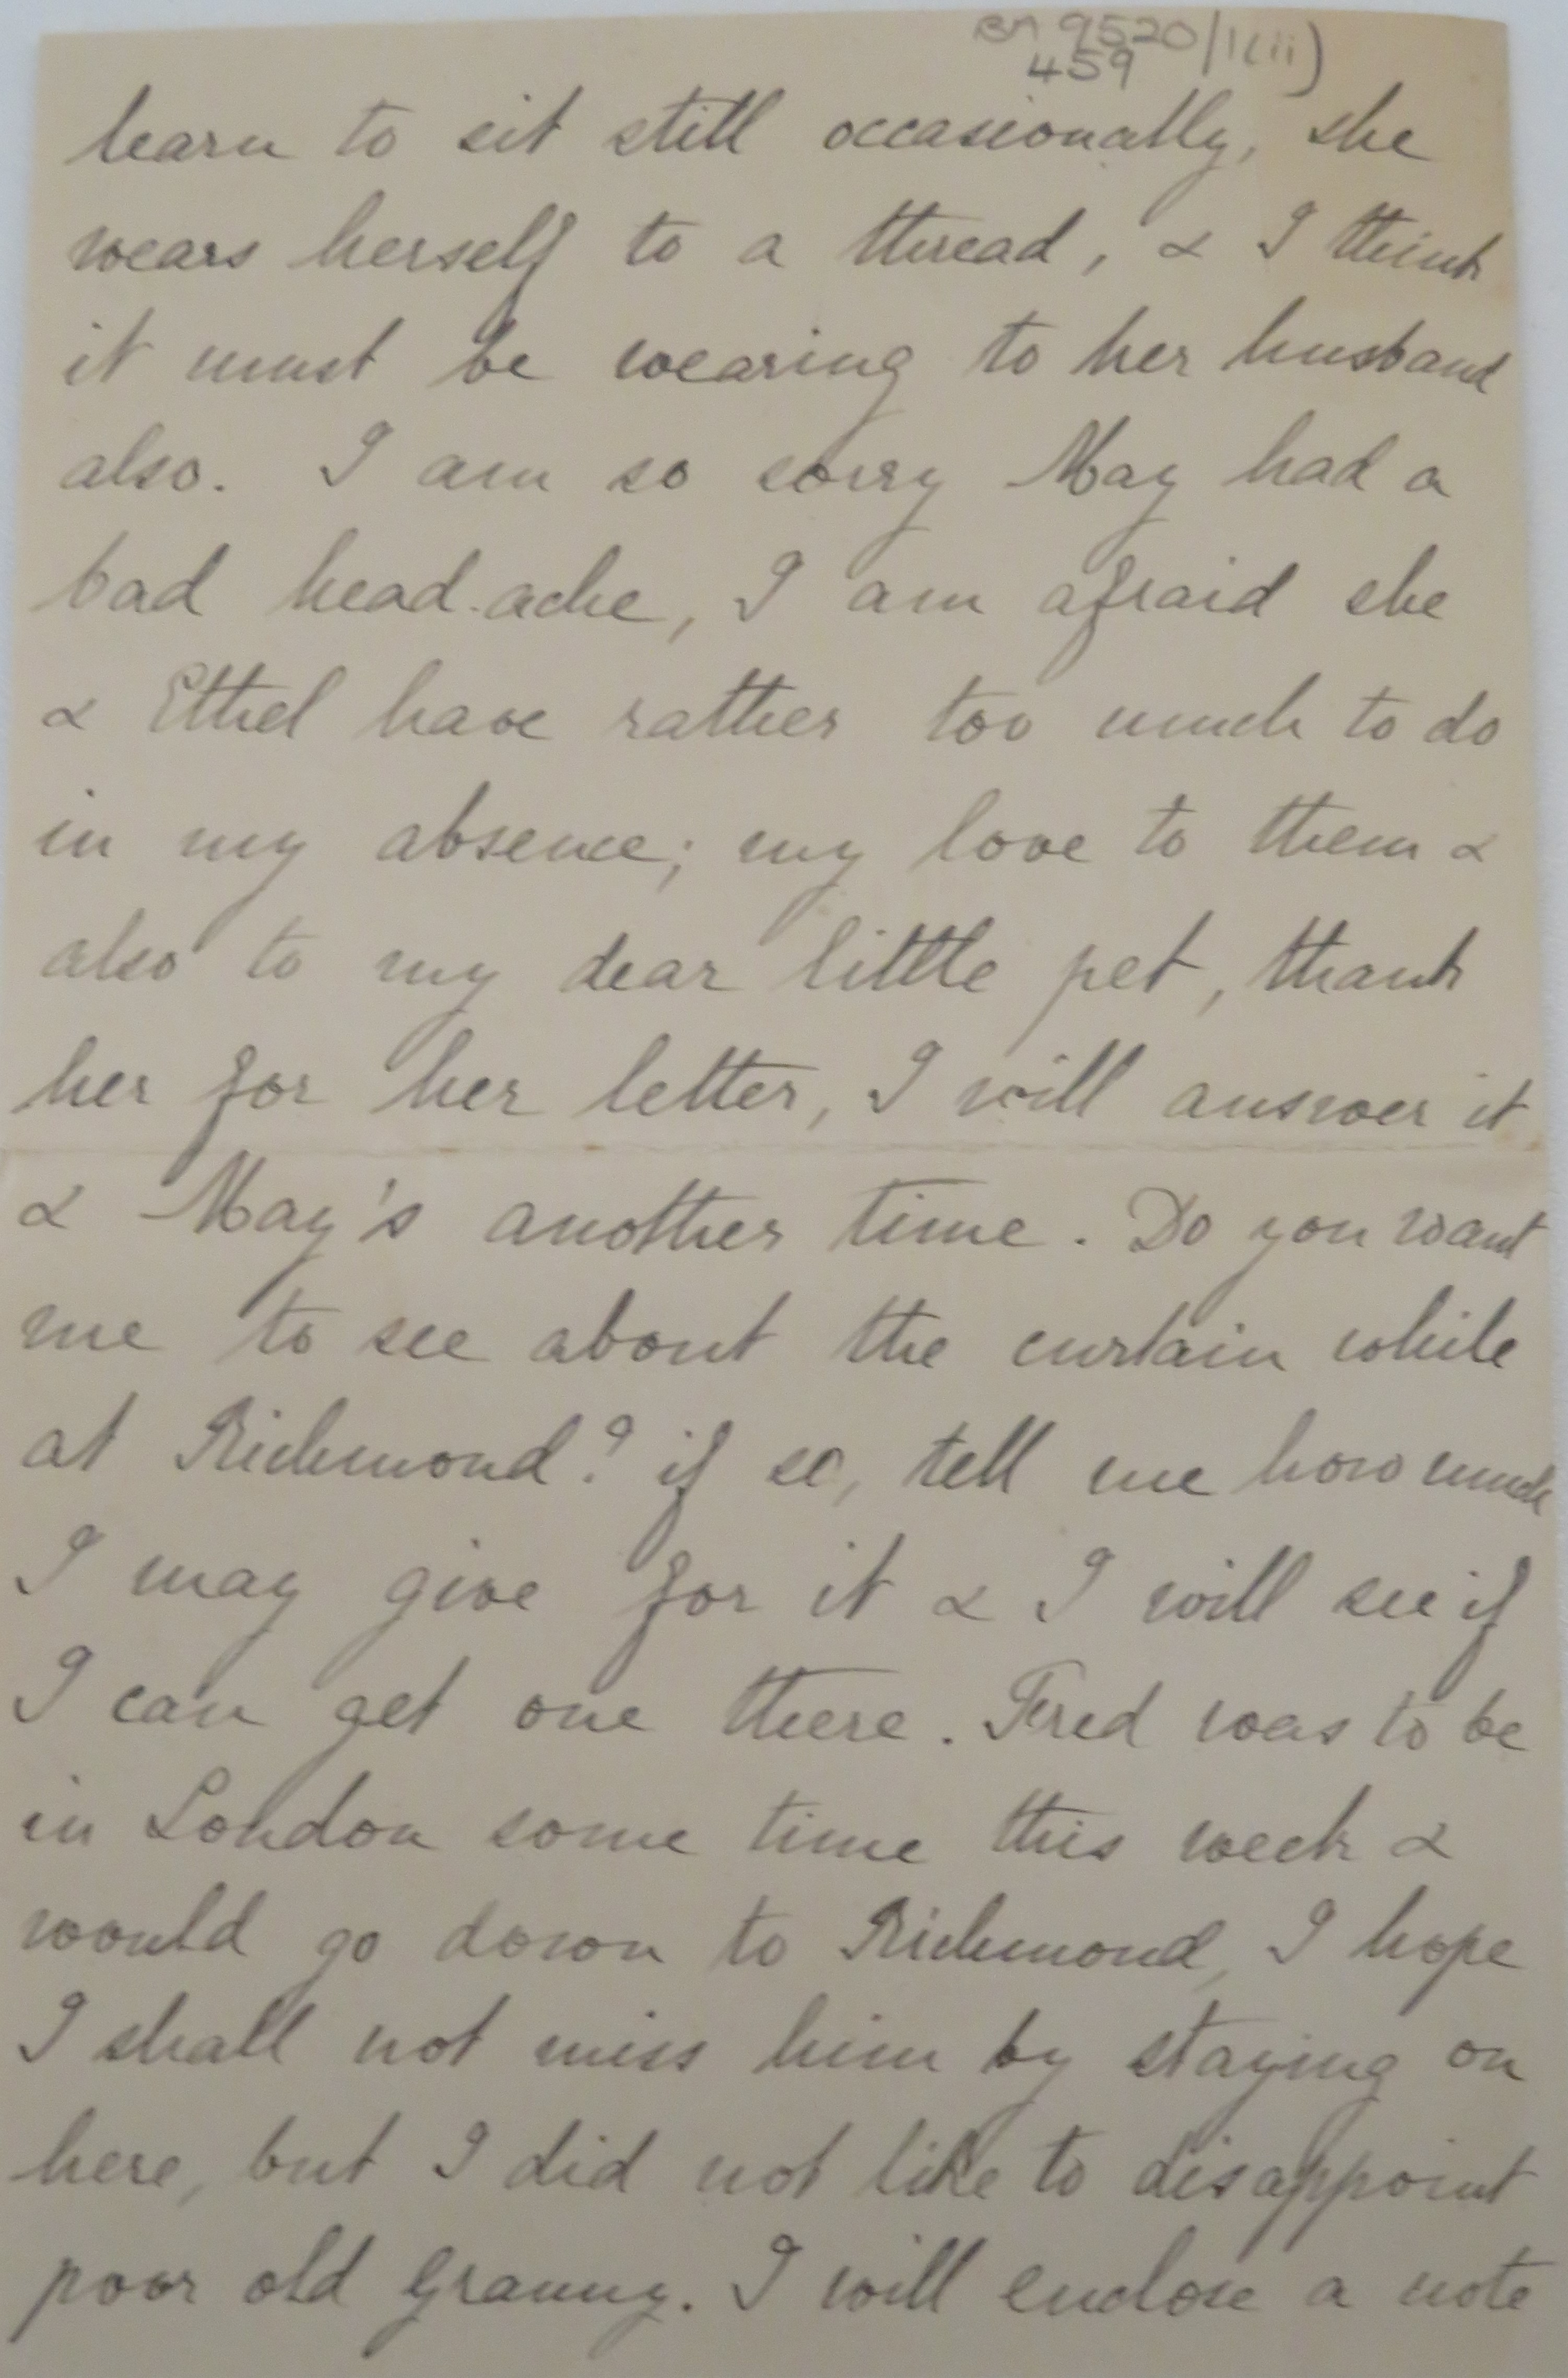 BA 9520/1(ii)
459
learn to sit still occasionally, she
wears herself to a thread, & I think
it must be wearing to her husband
also. I am so sorry May had a
bad head-ache, I am afraid she
& Ethel have rather too much to do
in my absence; my love to them &
also to my dear little pet, thank
her for her letter, I will answer it
& May's another time. Do you want
me to see about the curtain while
at Richmond? if so, tell me how much
I may give for it & I will see if
I can get one there. Fred was to be
in London some time this week &
would go down to Richmond, I hope
I shall not miss him by staying on
here, but I did not like to disappoint
poor old Granny. I will enclose a note